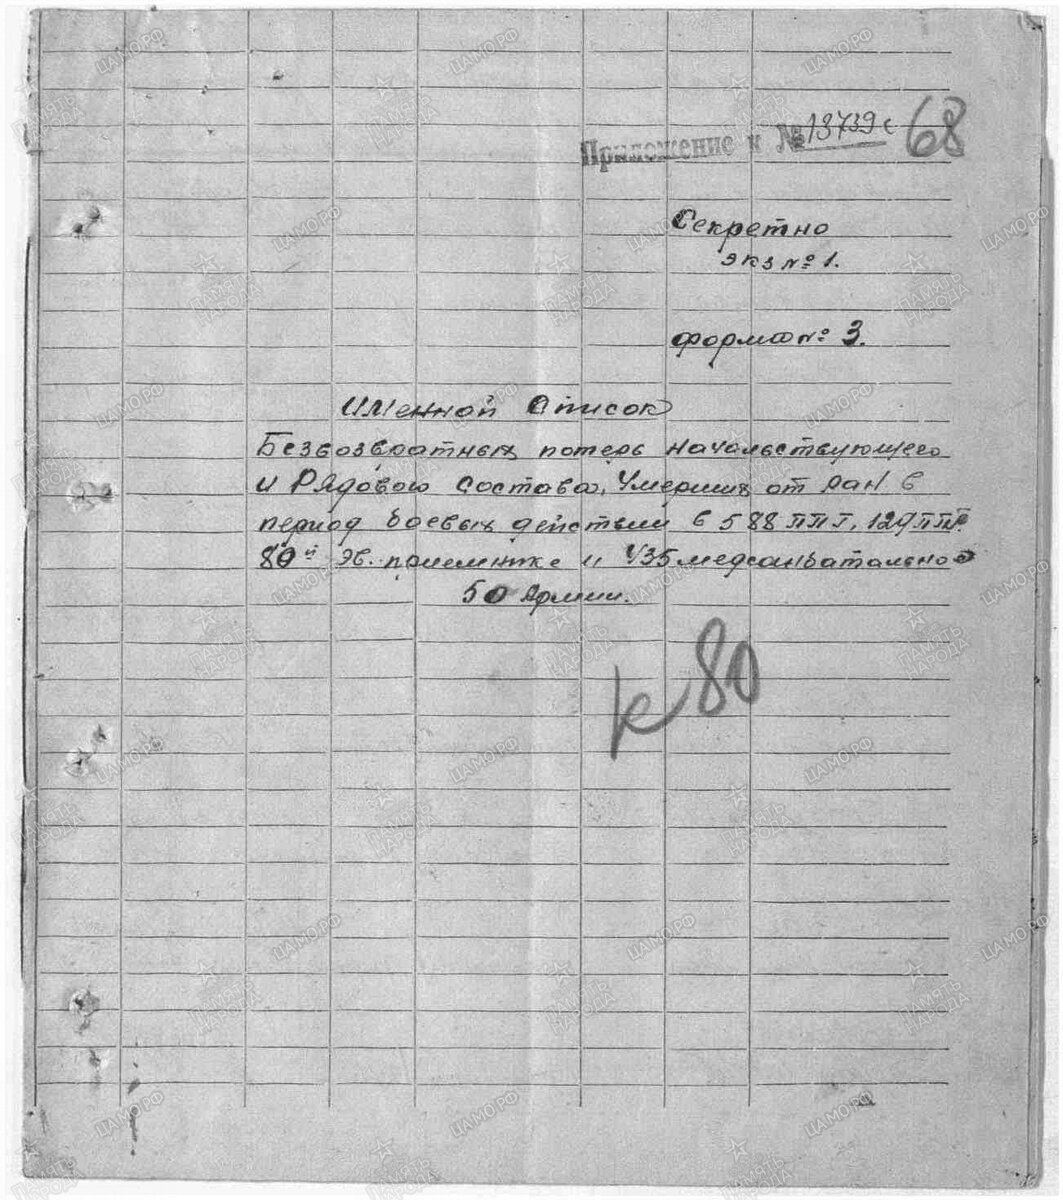 Приложение к № 18739с 68
Секретно
экз № 1.
форма № 3.
Именной Список
Безвозвратных потерь начальствующего
и Рядового состава, Умерших от ран в
период боевых действий в 588 ППГ, 129 ППГ
80й эв. приемнике и 435 медсанбатально
50 Армии.
к 80